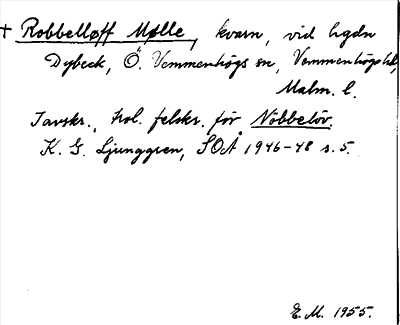 + Robbelløff Mølle, kvarn, vid hgdn
Dybeck, Ö. Vemmenhögs sn, Vemmenhögs hd,
Malm. l.
Tavskr., trol. felskr. för Nöbbelöv.
K. G. Ljunggren, SOÅ 1946-48 s. 5.
E. M. 1955.